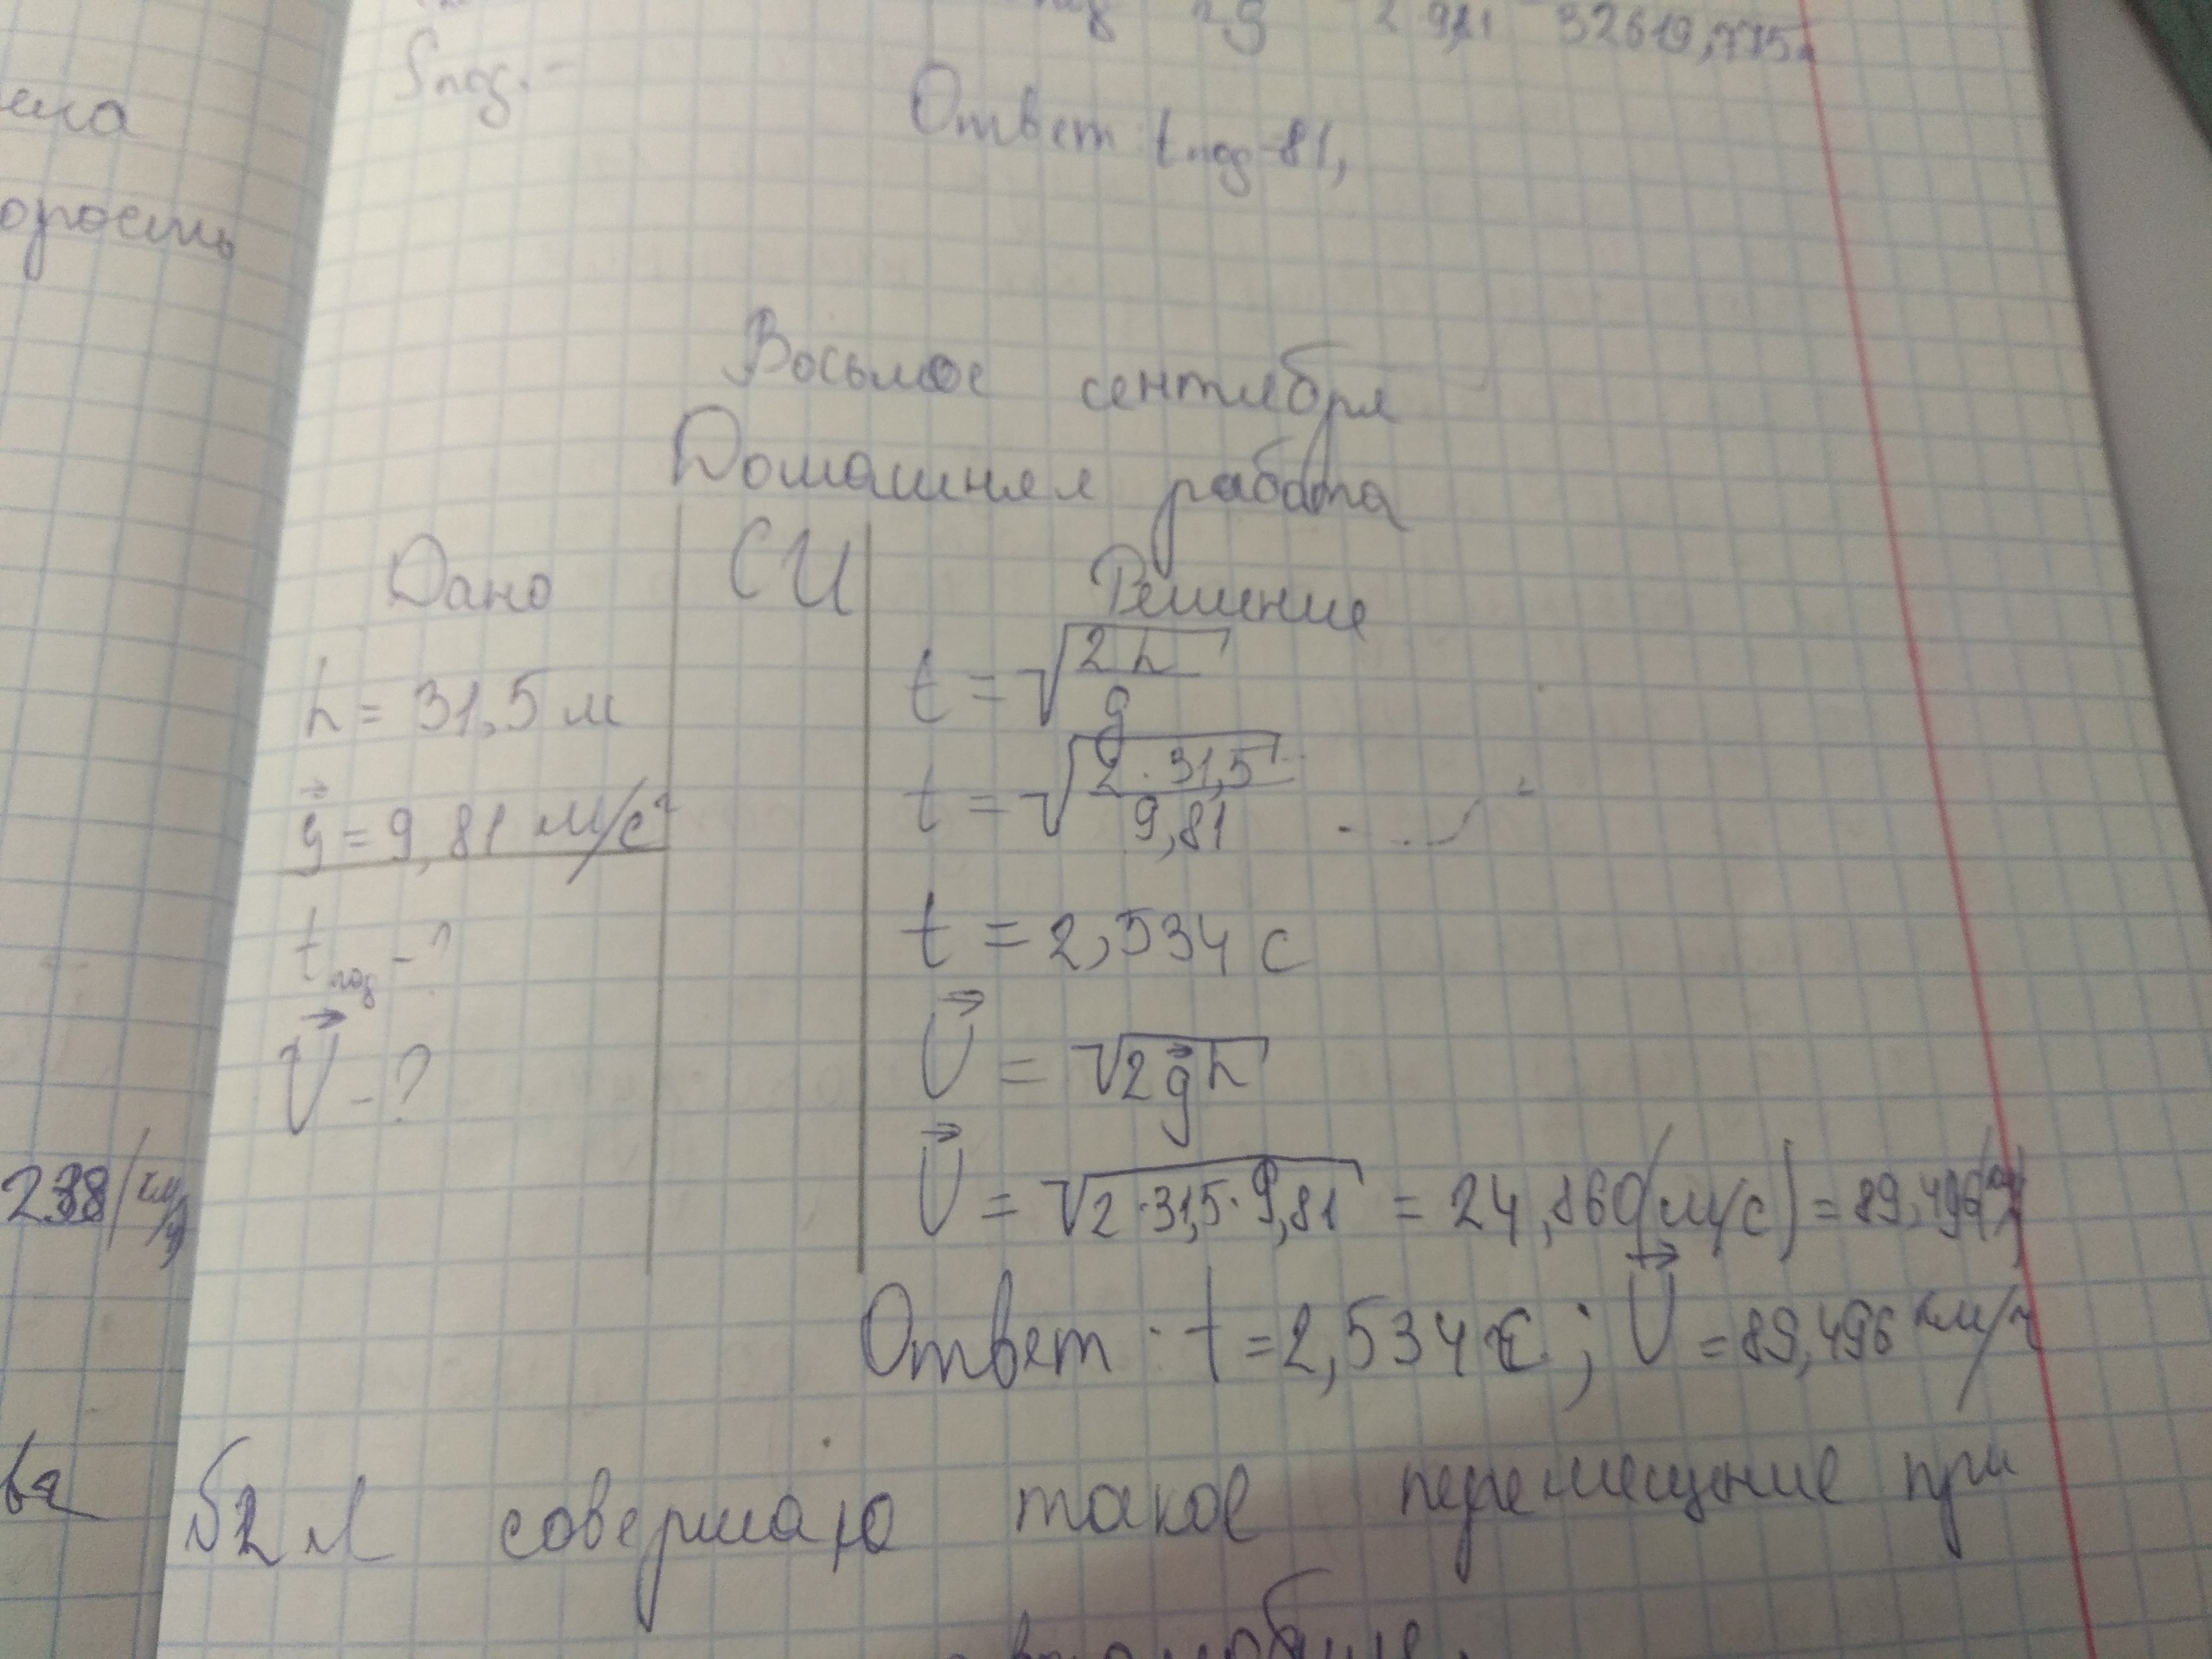 2 9,81 32619,775
Sпад. -
Ответ: tпад-81,
орость
Восьмое сентября
Домашняя работа
Дано СИ Решение
h = 31,5 м
g⃗ = 9,81 м/с²
tпад - ?
V⃗ - ?
t = √(2h/g)
t = √(2·31,5/9,81)
t = 2,534 с
V⃗ = √(2g⃗h)
V⃗ = √(2·31,5·9,81) = 24,860(м/с) = 89,496(км/ч)
Ответ: t = 2,534 с; V⃗ = 89,496 км/ч
238(км/ч)
№2 Я совершаю такое перемещение при